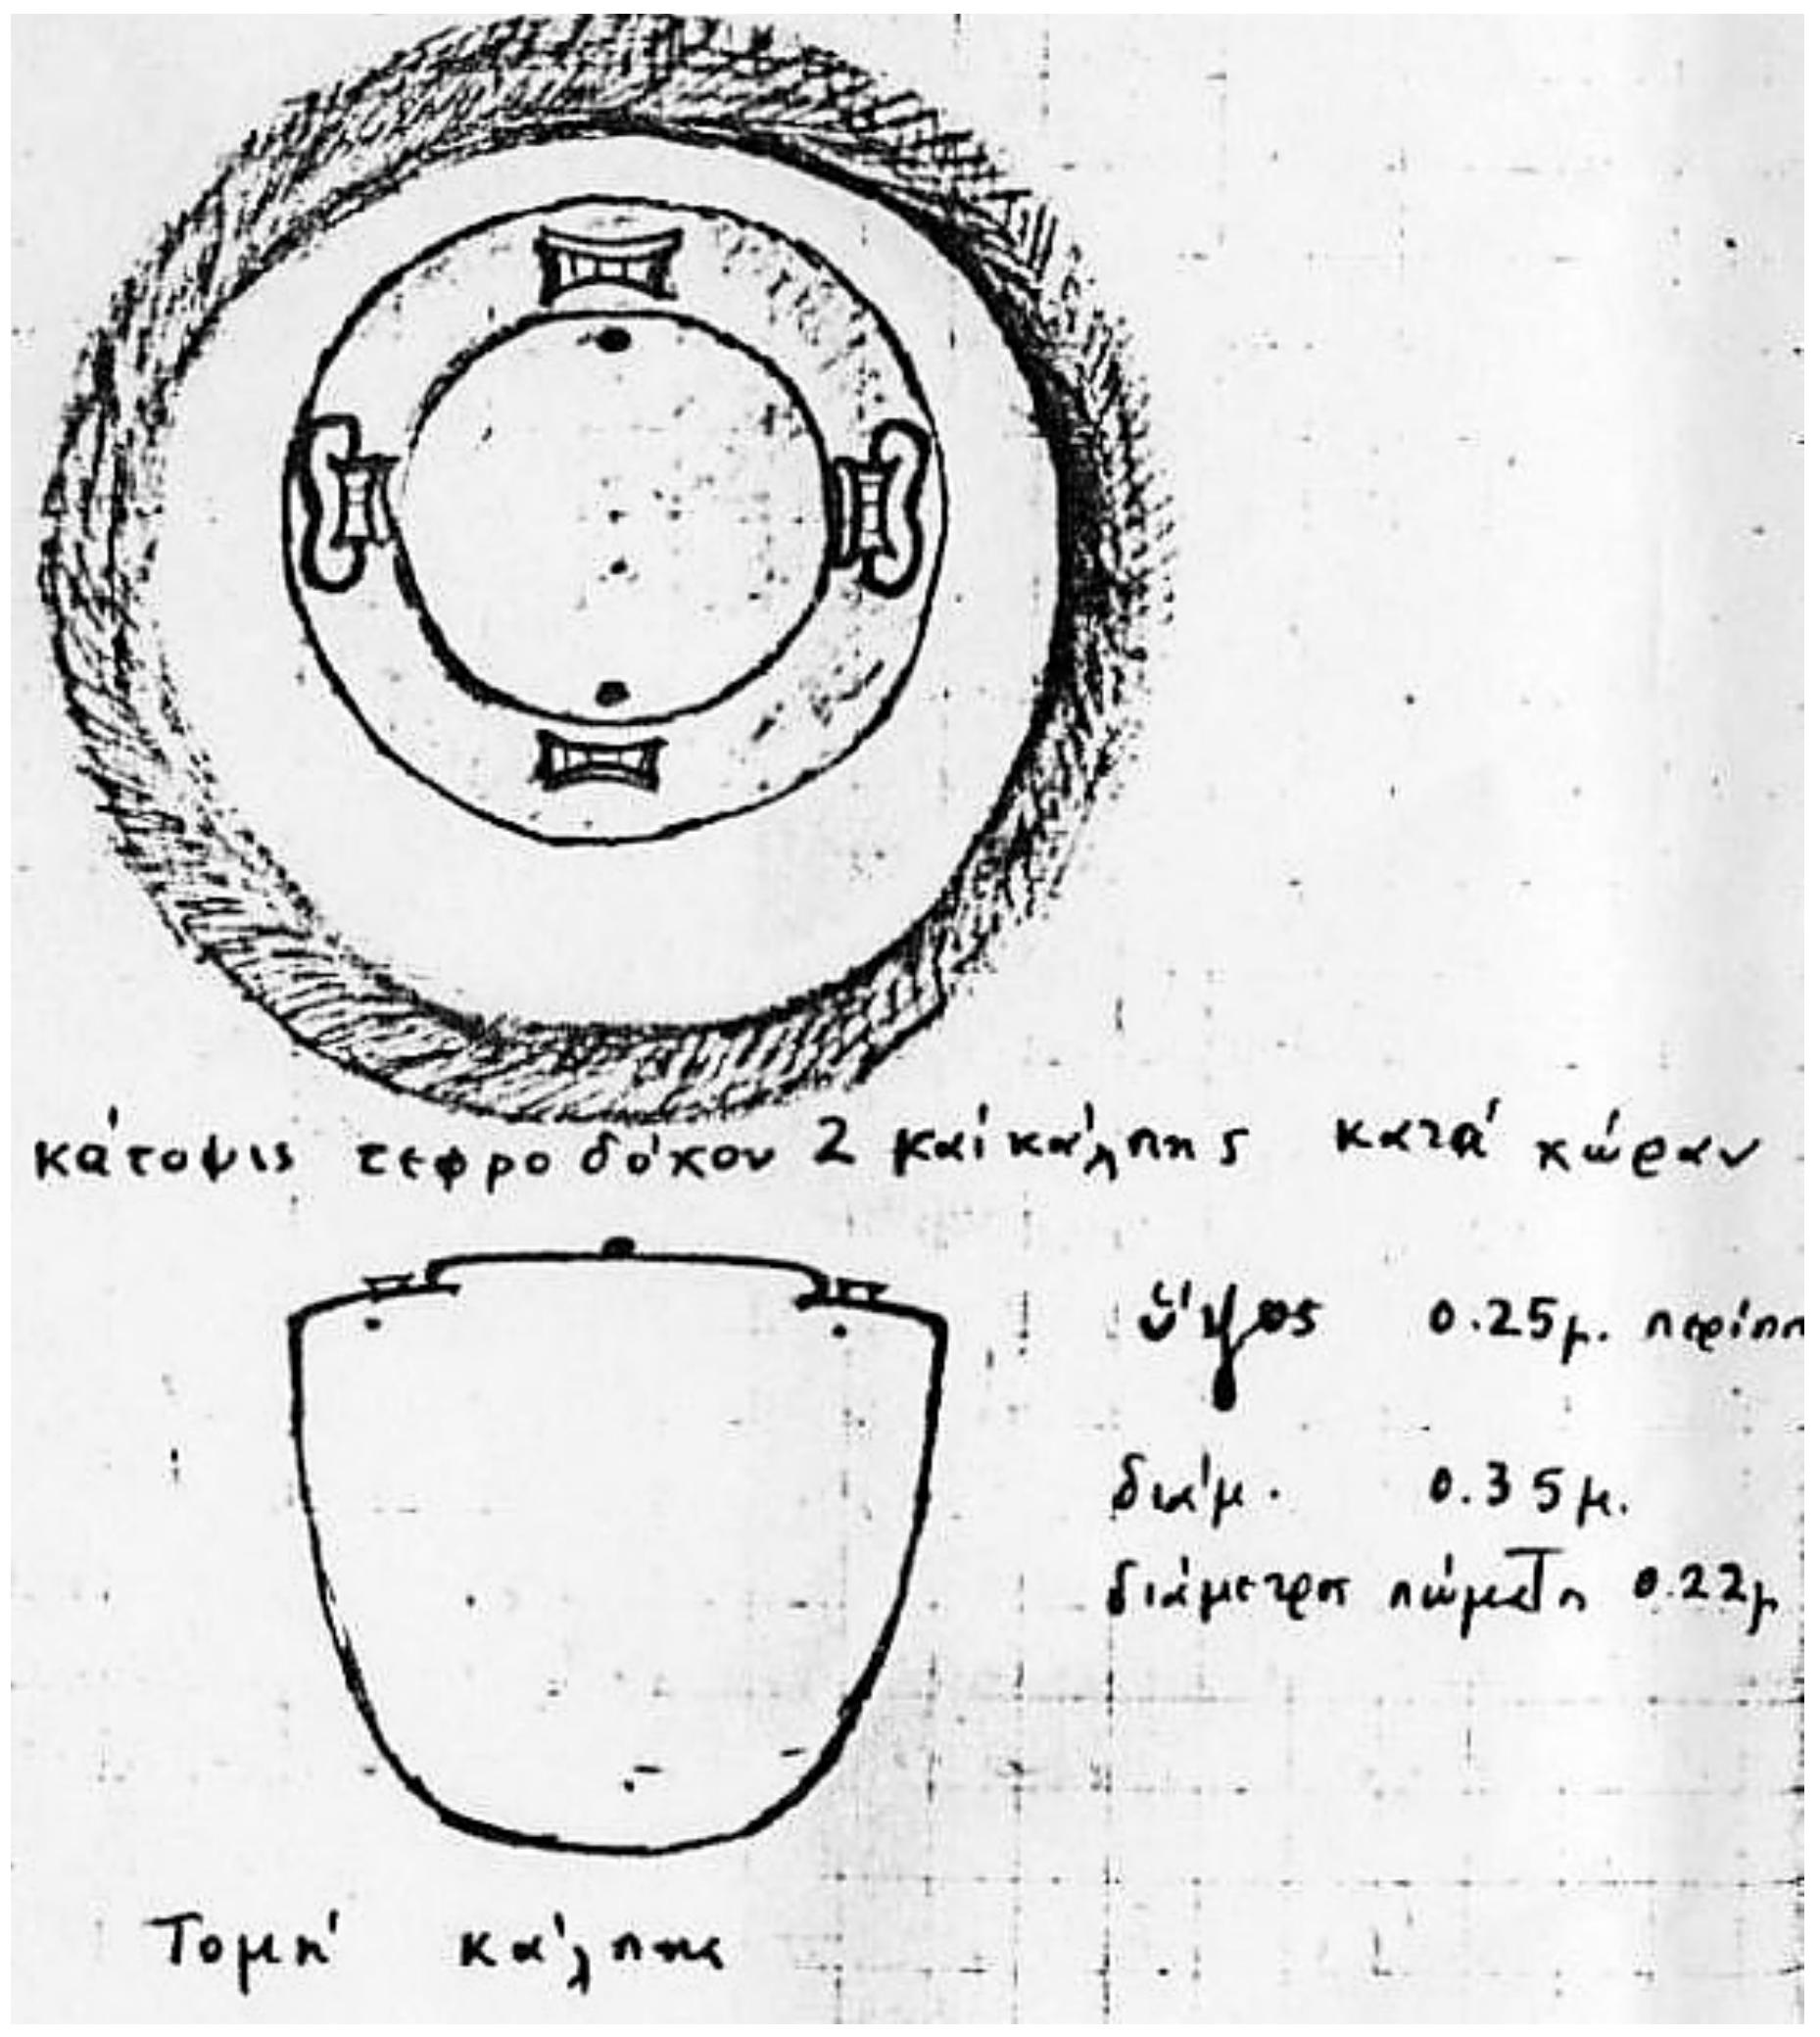 κάτοψις τεφροδόχου 2 καί κάλπης κατά χώραν
ὕψος 0.25μ. περίπ
διάμ. 0.35μ.
διάμετρος πώματος 0.22μ
Τομή κάλπης